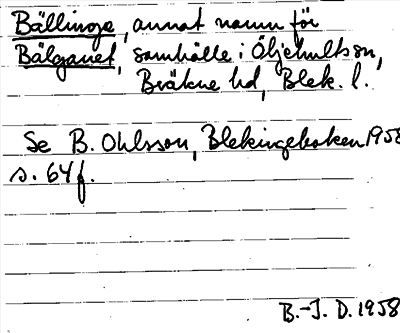 Bällinge, annat namn för
Bälganet, samhälle i Öljehults sn,
Bräkne hd, Blek. l.
Se B. Ohlsson, Blekingeboken 1958
s. 64 f.
B.-I. D. 1958